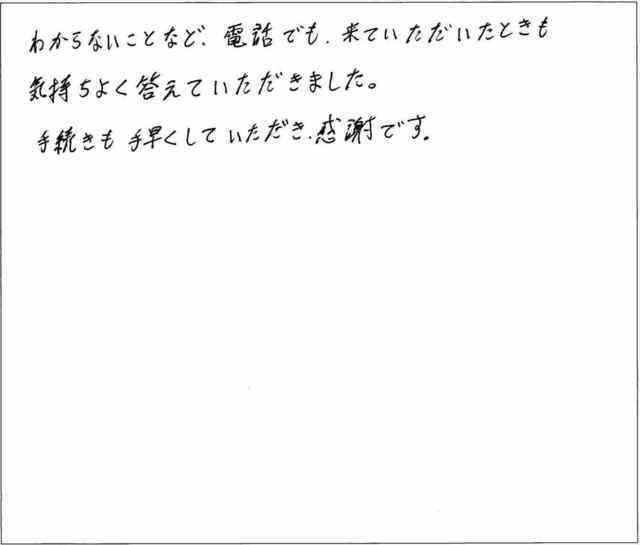 わからないことなど、電話でも、来ていただいたときも
気持ちよく答えていただきました。
手続きも手早くしていただき、感謝です。